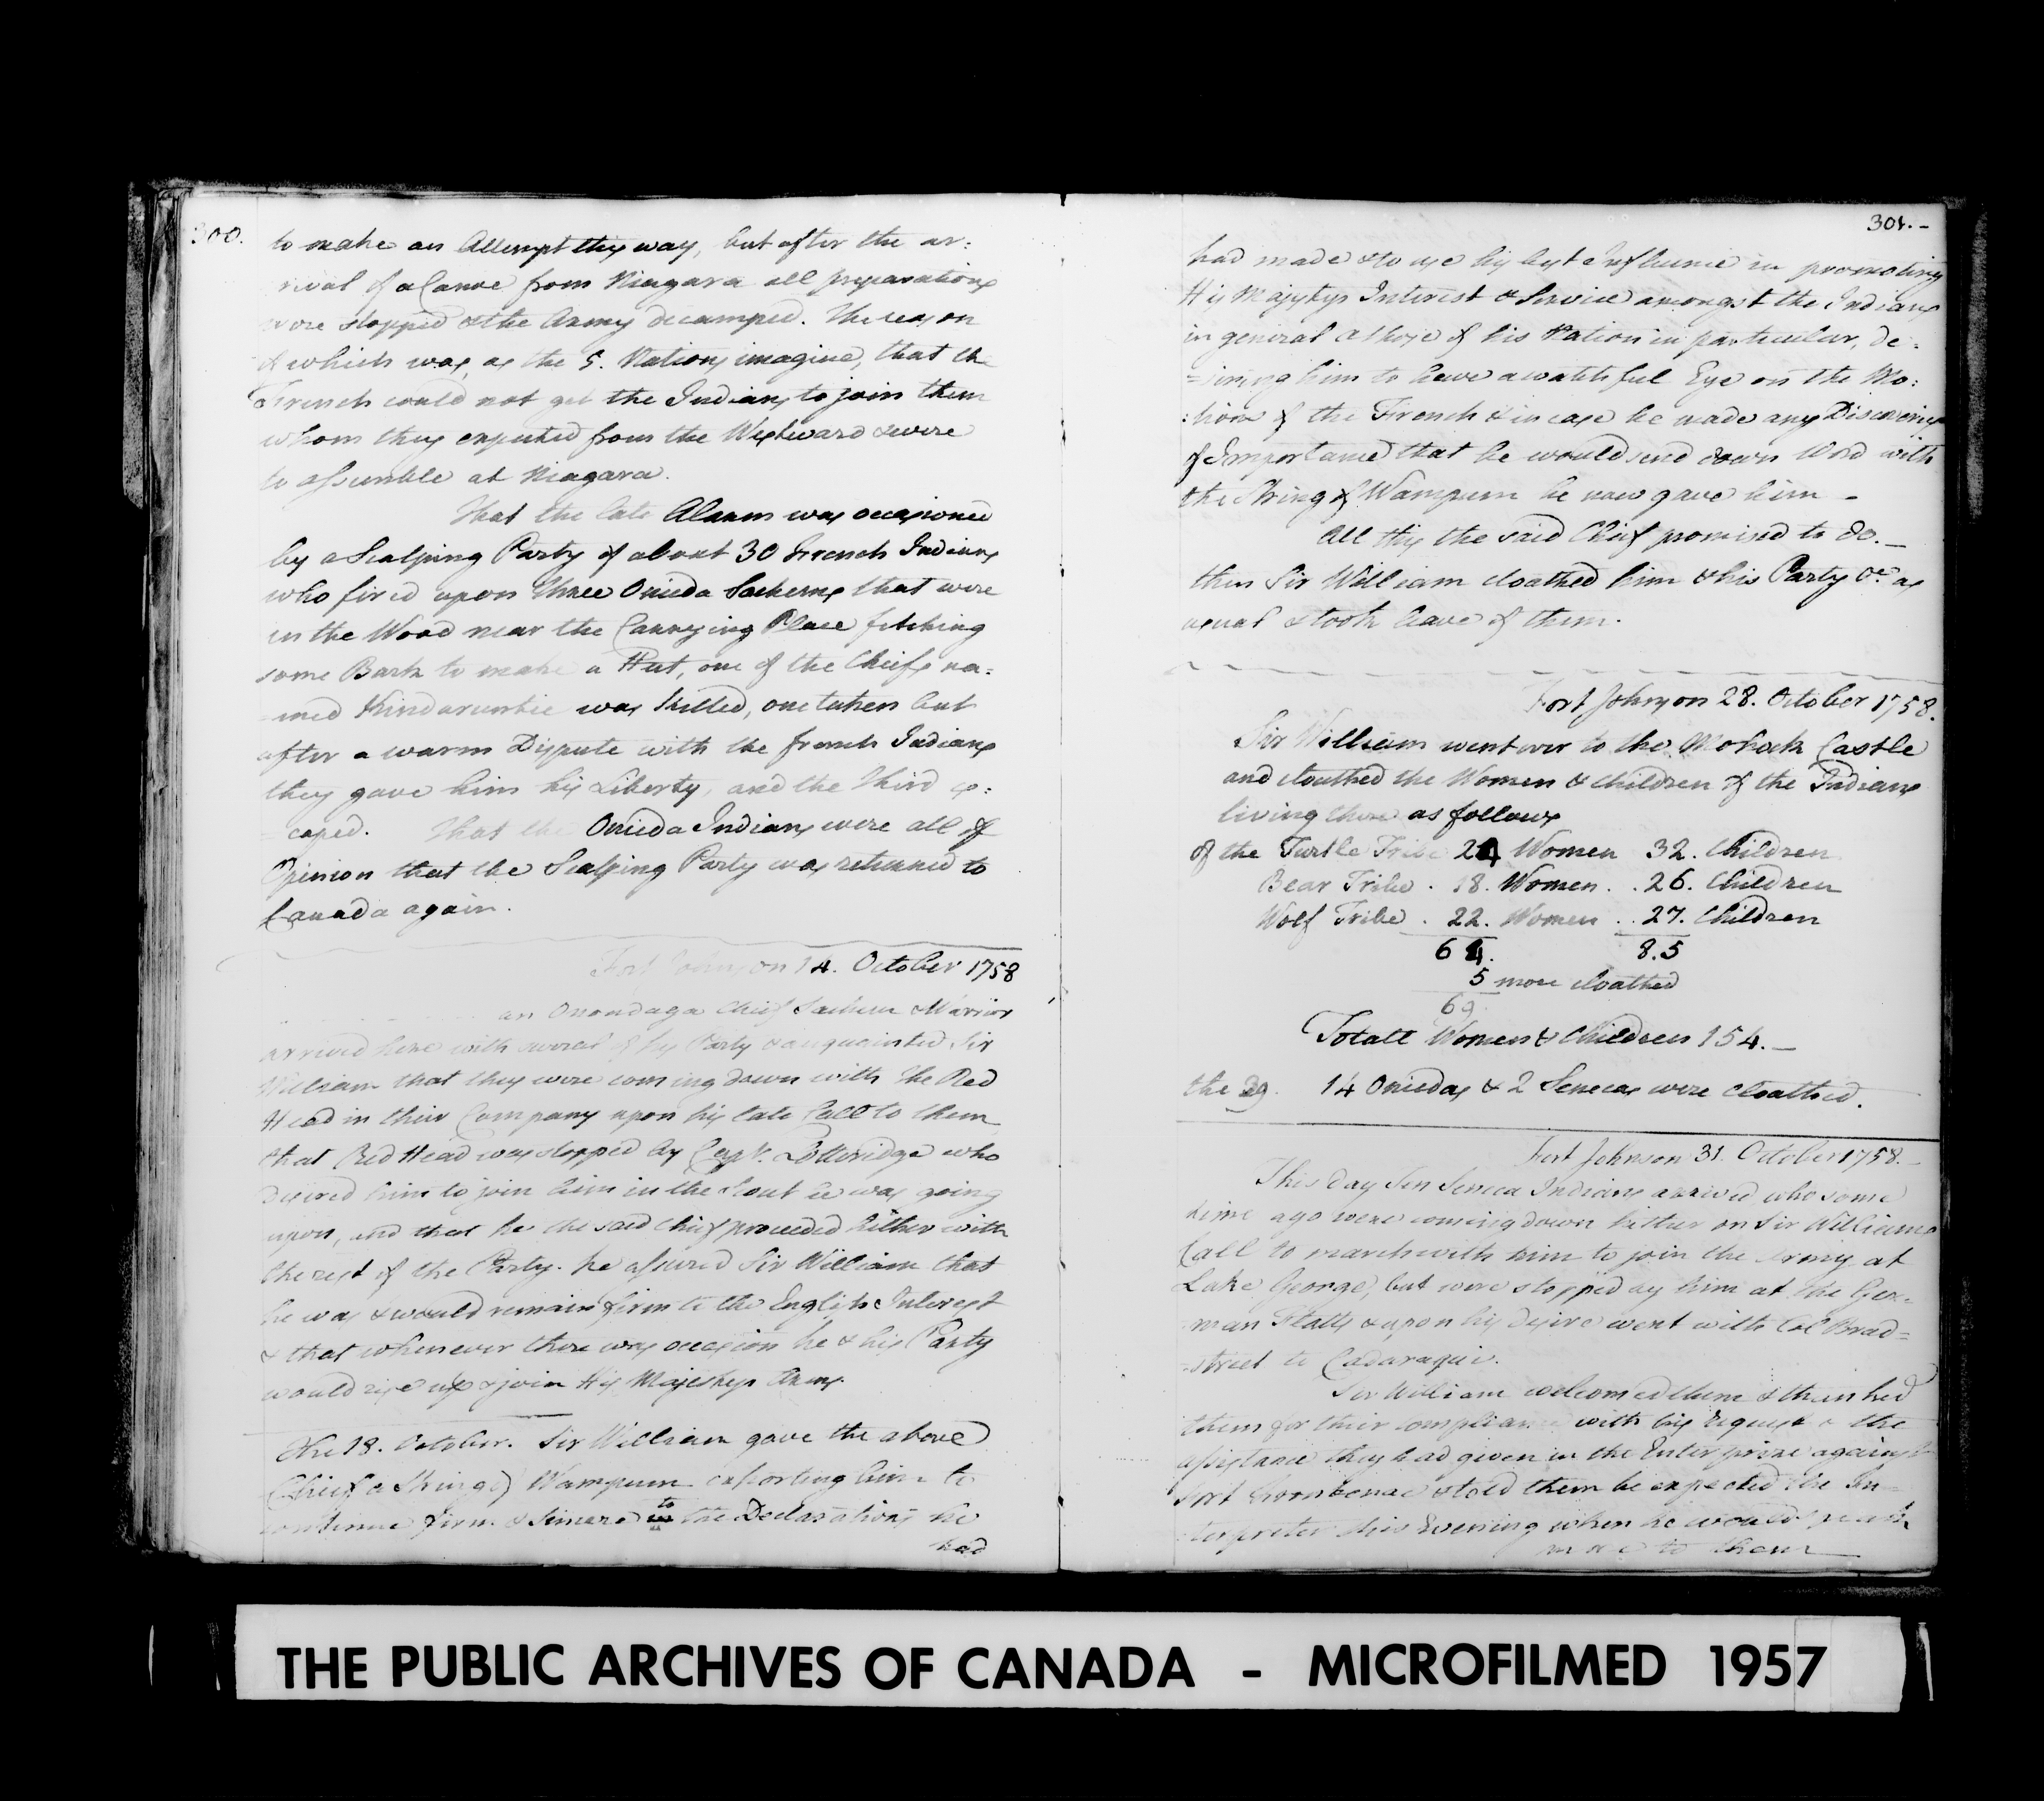 300.
to make an Attempt this way, but after the ar:
rival of a Canoe from Niagara all preparations
were stopped & the Army decamped. The reason
of which was, as the 5. Nations imagine, that the
French could not get the Indians to join them
whom they expected from the Westward & were
to assemble at Niagara.
That the late Alarm was occasioned
by a Scalping Party of about 30 French Indians
who fired upon three Oneida Sachems that were
in the Wood near the Carrying Place fetching
some Bark to make a Hut, one of the Chiefs na:
=med was killed, one taken but
after a warm Dispute with the french Indians
they gave him his Liberty, and the third es:
=caped. That the Oneida Indians were all of
Opinion that the Scalping Party was returned to
Canada again.
Fort Johnson 14. October 1758
an Onondaga Chief Sachem & Warrior
arrived here with several of his Party & acquainted Sir
William that they were coming down with the Red
Head in their Company upon his late Call to them
that Red Head was stopped by Capt. Lotteridge who
desired him to join him in the Scout he was going
upon, and that he the said Chief proceeded hither with
the rest of the Party. he assured Sir William that
he was & would remain firm to the English Interest
& that whenever there was occasion he & his Party
would rise up & join His Majestys Army.
The 18. October. Sir William gave the above
Chief a String of Wampum exhorting him to
continue firm & sincere to the Declarations he
had
301.-
had made & to use his best Influence in promoting
His Majestys Interest & Service amongst the Indians
in general & those of his Nation in particular, de:
=siring him to have a watchful Eye on the Mo:
:tions of the French & in case he made any Discoverys
of Importance that he would send down Word with
the String of Wampum he now gave him -
All this the said Chief promised to do. -
then Sir William cloathed him & his Party &c as
usual & took leave of them.
Fort Johnson 28. October 1758.
Sir William went over to the Mohock Castle
and cloathed the Women & Children of the Indians
living there as follows
of the Turtle Tribe 24 Women 32. Children
Bear Tribe . 18. Women . . 26. Children
Wolf Tribe . 22. Women . . 27. Children
64. 8.5
5 more cloathed
69.
Totall Women & Children 154. -
the 29. 14 Oneidas & 2 Senecas were cloathed.
Fort Johnson 31 October 1758. -
This day Ten Seneca Indians arrived who some
time ago were coming down hither on Sir Williams
Call to march with him to join the Army at
Lake George, but were stopped by him at the Ger=
man Flatts & upon his Desire went with Col Brad=
-street to Cadaraqui.
Sir William welcomed them & thanked
them for their compliance with his request & the
assistance they had given in the Enterprize against
Fort & told them he expected the In=
terpreter this Evening when he would speak
more to them
THE PUBLIC ARCHIVES OF CANADA - MICROFILMED 1957